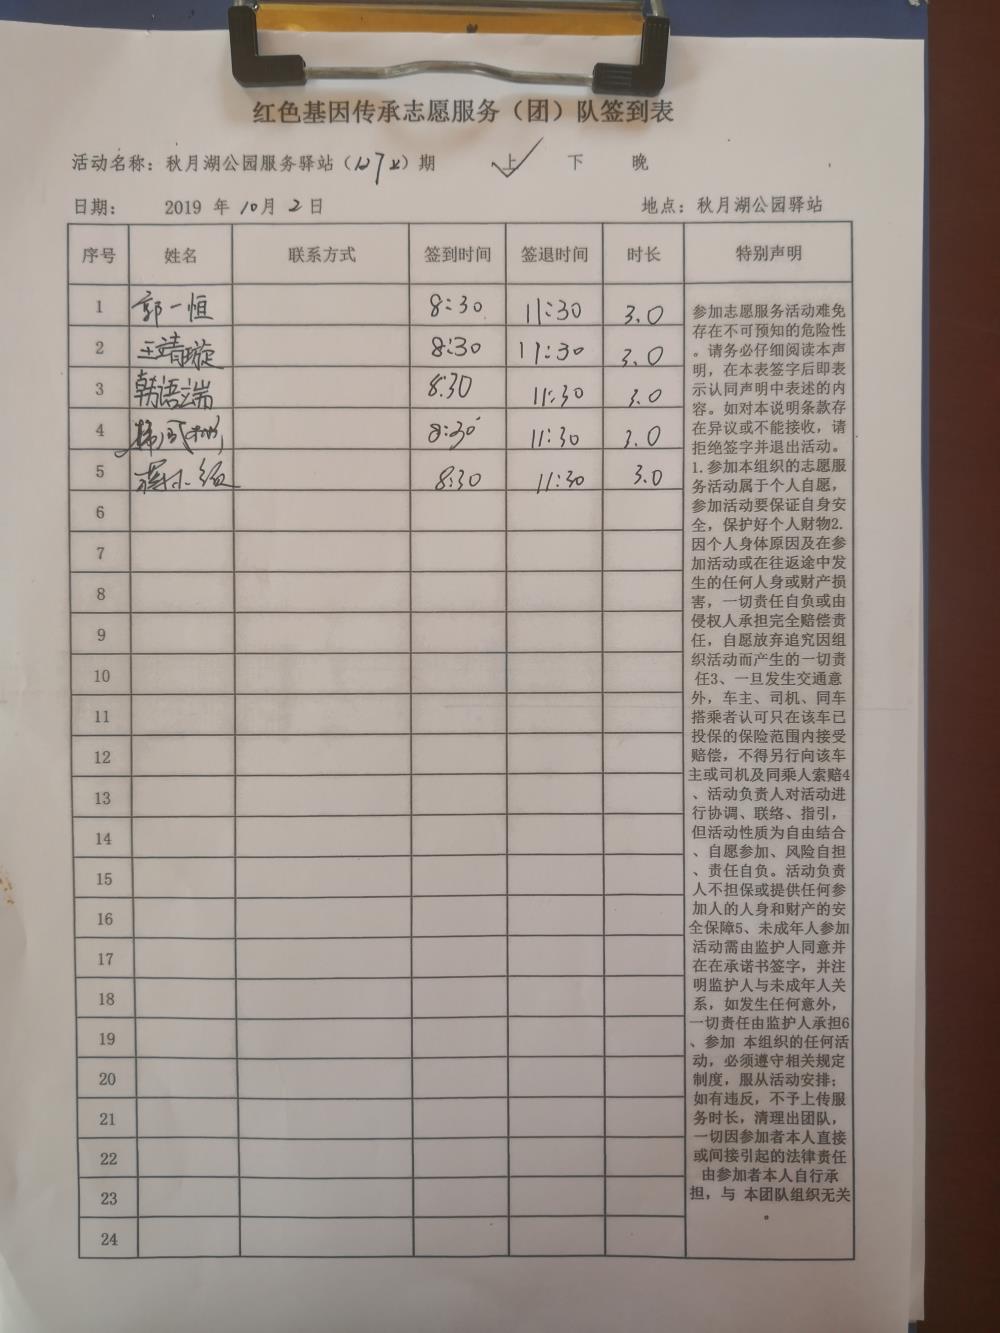 红色基因传承志愿服务（团）队签到表
活动名称：秋月湖公园服务驿站（）期 上 下 晚
日期： 2019 年 10 月 2 日 地点：秋月湖公园驿站
序号 姓名 联系方式 签到时间 签退时间 时长 特别声明
1 郭一恒 8:30 11:30 3.0
2 王靖璇 8:30 11:30 3.0
3 韩语端 8:30 11:30 3.0
4 8:30 11:30 3.0
5 8:30 11:30 3.0
6
7
8
9
10
11
12
13
14
15
16
17
18
19
20
21
22
23
24
参加志愿服务活动难免
存在不可预知的危险性
。请务必仔细阅读本声
明，在本表签字后即表
示认同声明中表述的内
容。如对本说明条款存
在异议或不能接收，请
拒绝签字并退出活动。
1.参加本组织的志愿服
务活动属于个人自愿，
参加活动要保证自身安
全，保护好个人财物2.
因个人身体原因及在参
加活动或在往返途中发
生的任何人身或财产损
害，一切责任自负或由
侵权人承担完全赔偿责
任，自愿放弃追究因组
织活动而产生的一切责
任3、一旦发生交通意
外，车主、司机、同车
搭乘者认可只在该车已
投保的保险范围内接受
赔偿，不得另行向该车
主或司机及同乘人索赔4
、活动负责人对活动进
行协调、联络、指引，
但活动性质为自由结合
、自愿参加、风险自担
、责任自负。活动负责
人不担保或提供任何参
加人的人身和财产的安
全保障5、未成年人参加
活动需由监护人同意并
在在承诺书签字，并注
明监护人与未成年人关
系，如发生任何意外，
一切责任由监护人承担6
、参加 本组织的任何活
动，必须遵守相关规定
制度，服从活动安排；
如有违反，不予上传服
务时长，清理出团队，
一切因参加者本人直接
或间接引起的法律责任
由参加者本人自行承
担，与 本团队组织无关
。